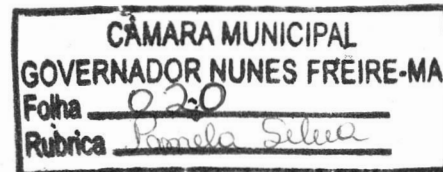 CÂMARA MUNICIPAL
GOVERNADOR NUNES FREIRE-MA
Folha 020
Rubrica Pamela Silva